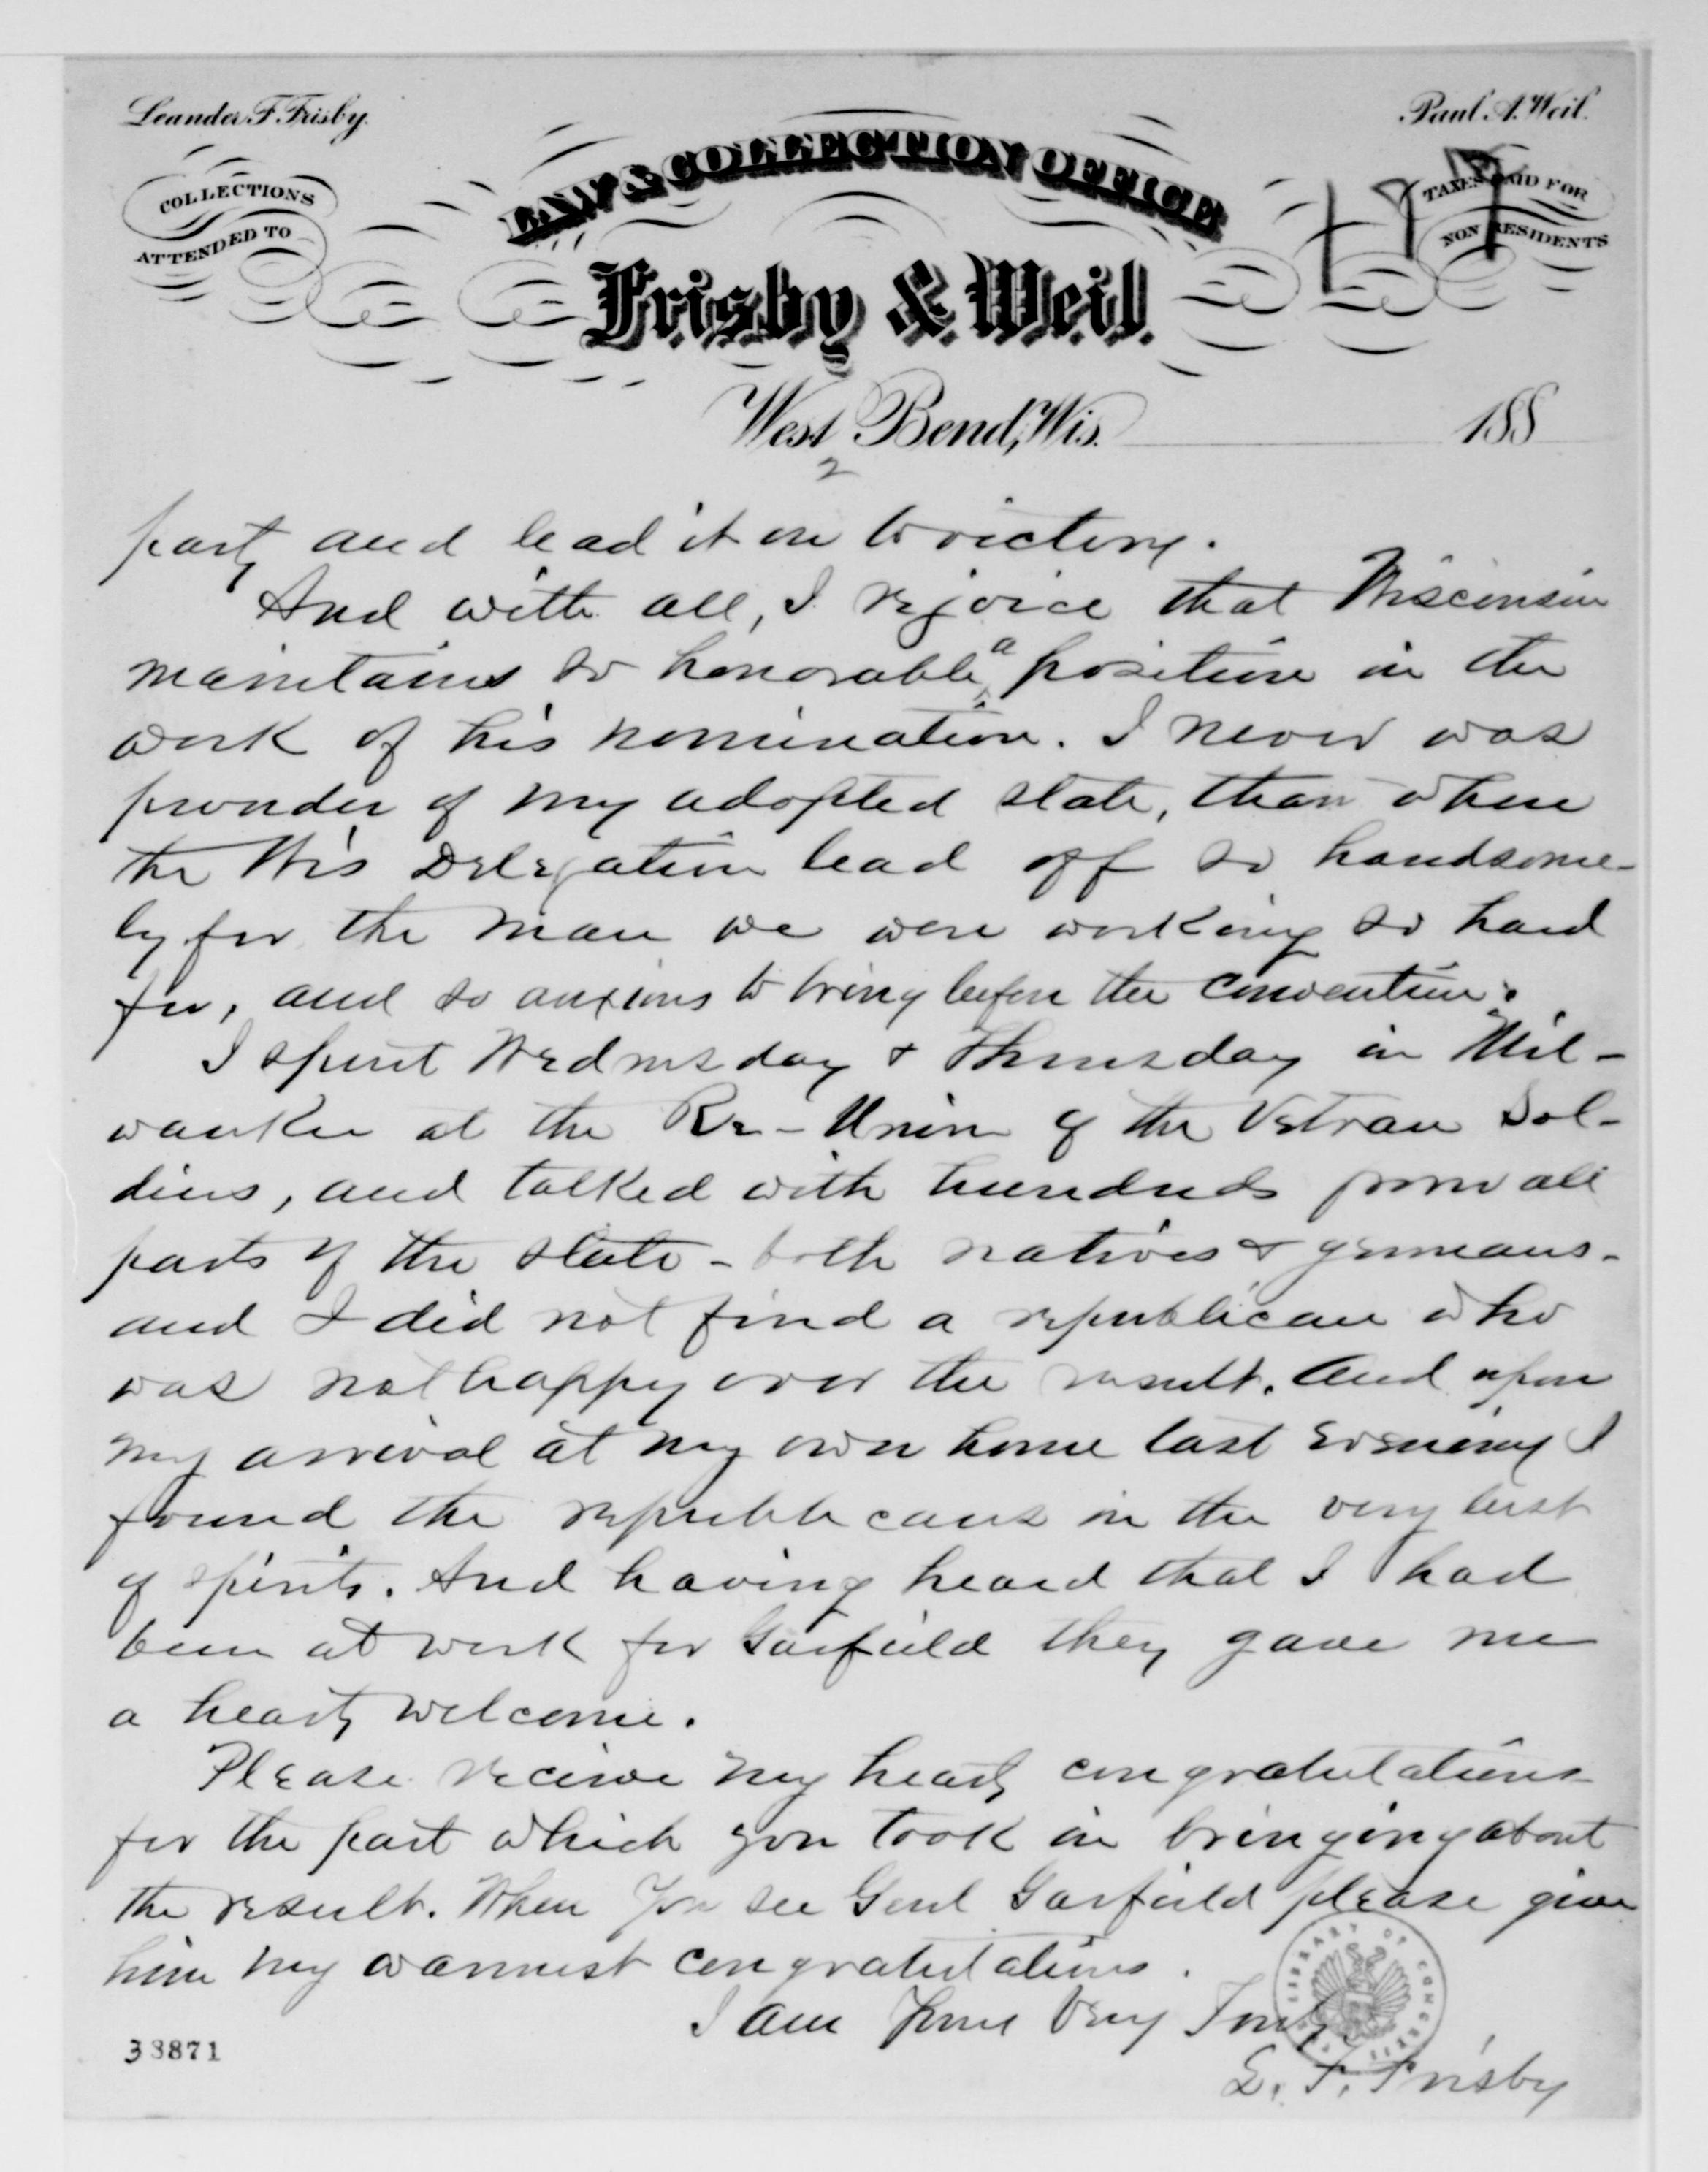 Leander F. Frisby.
Paul A. Weil.
COLLECTIONS
ATTENDED TO
LAW & COLLECTION OFFICE
TAXES PAID FOR
NON RESIDENTS
Frisby & Weil.
West Bend, Wis. 188
2
party and lead it on to victory.
And with all, I rejoice that Wisconsin
maintains so honorable a position in the
work of his nomination. I never was
prouder of my adopted state, than when
the Wis Delegation lead off so handsome-
ly for the man we were working so hard
for, and so anxious to bring before the Convention.
I spent Wednesday & Thursday in Mil-
waukee at the Re-Union of the Vetran Sol-
diers, and talked with hundreds from all
parts of the state - both natives & germans -
and I did not find a republican who
was not happy over the result. And upon
my arrival at my own home last evening I
found the republicans in the very best
of spirits. And having heard that I had
been at work for Garfield they gave me
a hearty welcome.
Please receive my hearty congratulations
for the part which you took in bringing about
the result. When you see Genl Garfield please give
him my warmest congratulations.
I am Yours Very Truly
L. F. Frisby
LIBRARY OF CONGRESS
33871